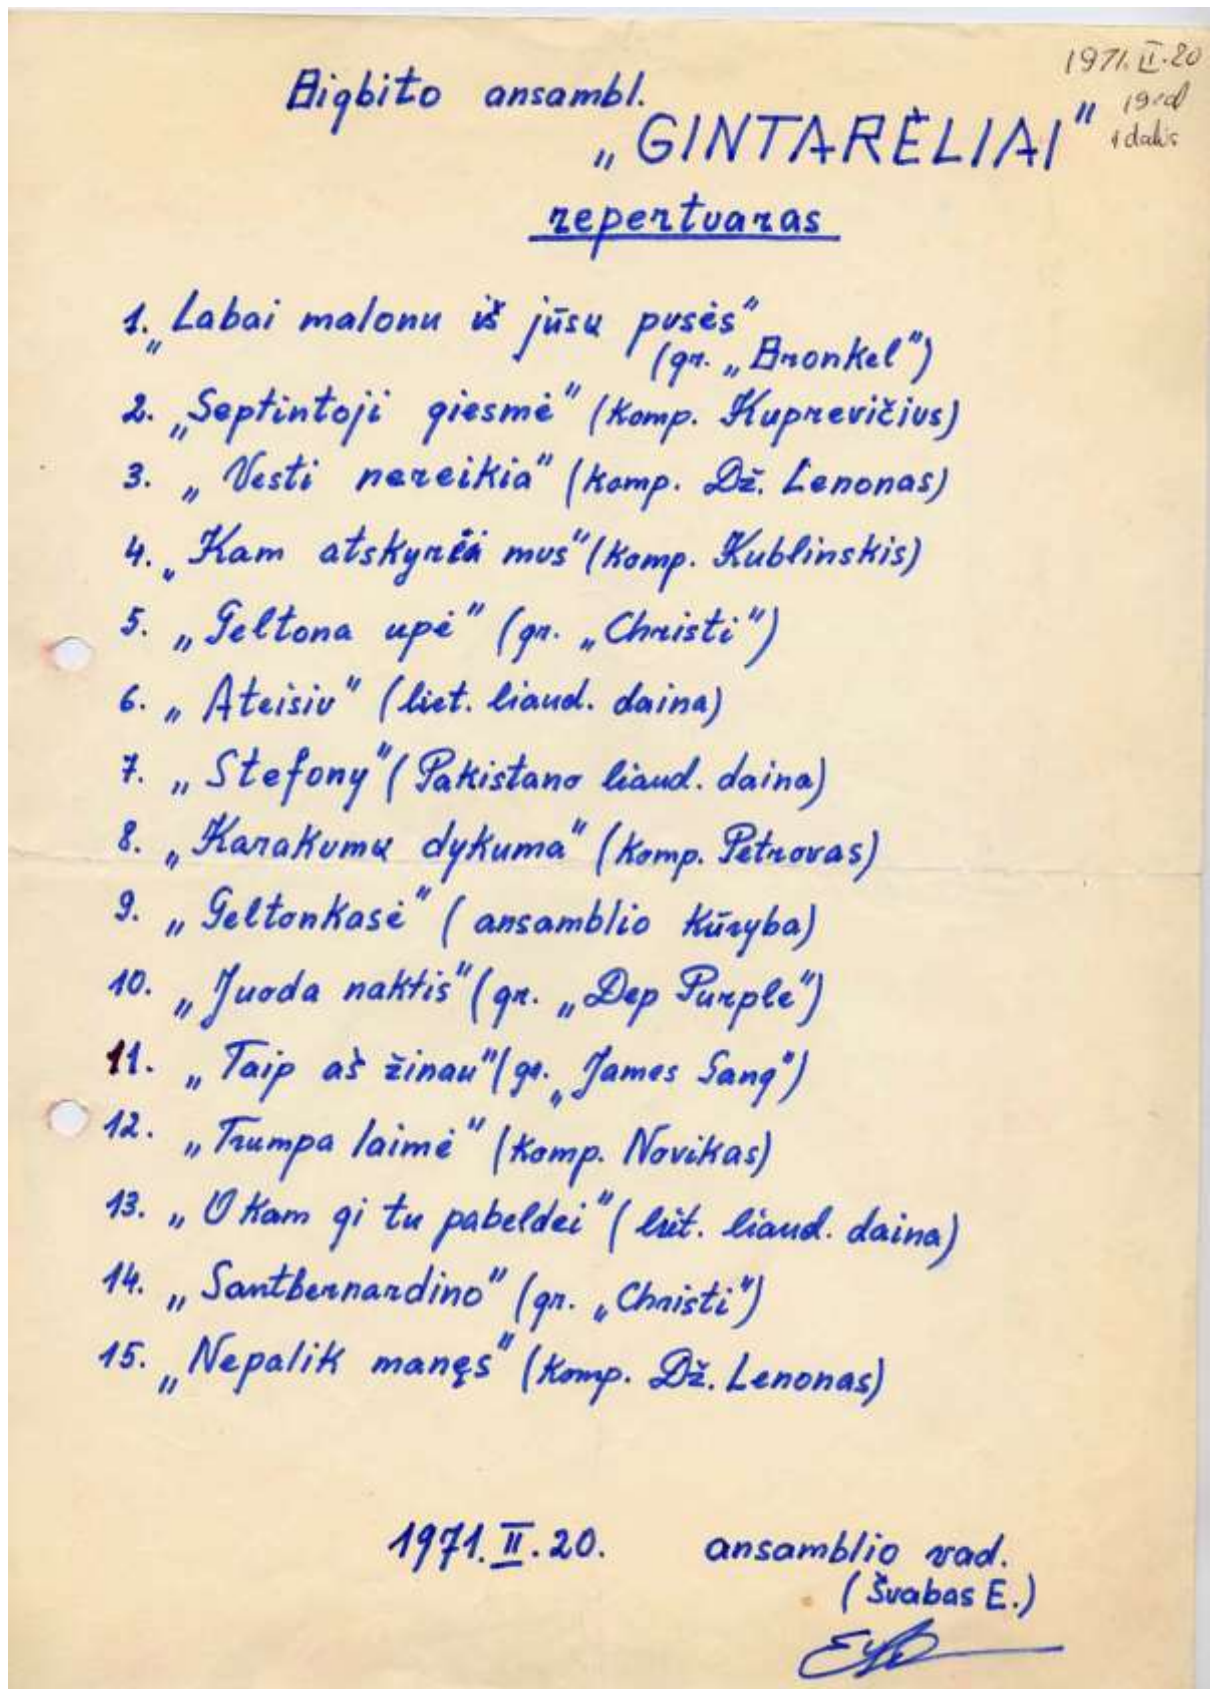 1971.II.20
19 val
1 dalis
Bigbito ansambl.
„GINTARĖLIAI"
repertuaras
1. „Labai malonu iš jūsų pusės"
(gr. „Bronkel")
2. „Septintoji giesmė" (komp. Kuprevičius)
3. „Vesti nereikia" (komp. Dž. Lenonas)
4. „Kam atskyrėi mus" (komp. Kublinskis)
5. „Geltona upė" (gr. „Christi")
6. „Ateisiu" (liet. liaud. daina)
7. „Stefony" (Pakistano liaud. daina)
8. „Karakumų dykuma" (komp. Petrovas)
9. „Geltonkasė" (ansamblio kūryba)
10. „Juoda naktis" (gr. „Dep Purple")
11. „Taip aš žinau" (gr. „James Sang")
12. „Trumpa laimė" (komp. Novikas)
13. „O kam gi tu pabeldei" (liet. liaud. daina)
14. „Santbernardino" (gr. „Christi")
15. „Nepalik manęs" (komp. Dž. Lenonas)
1971.II.20. ansamblio vad.
(Švabas E.)